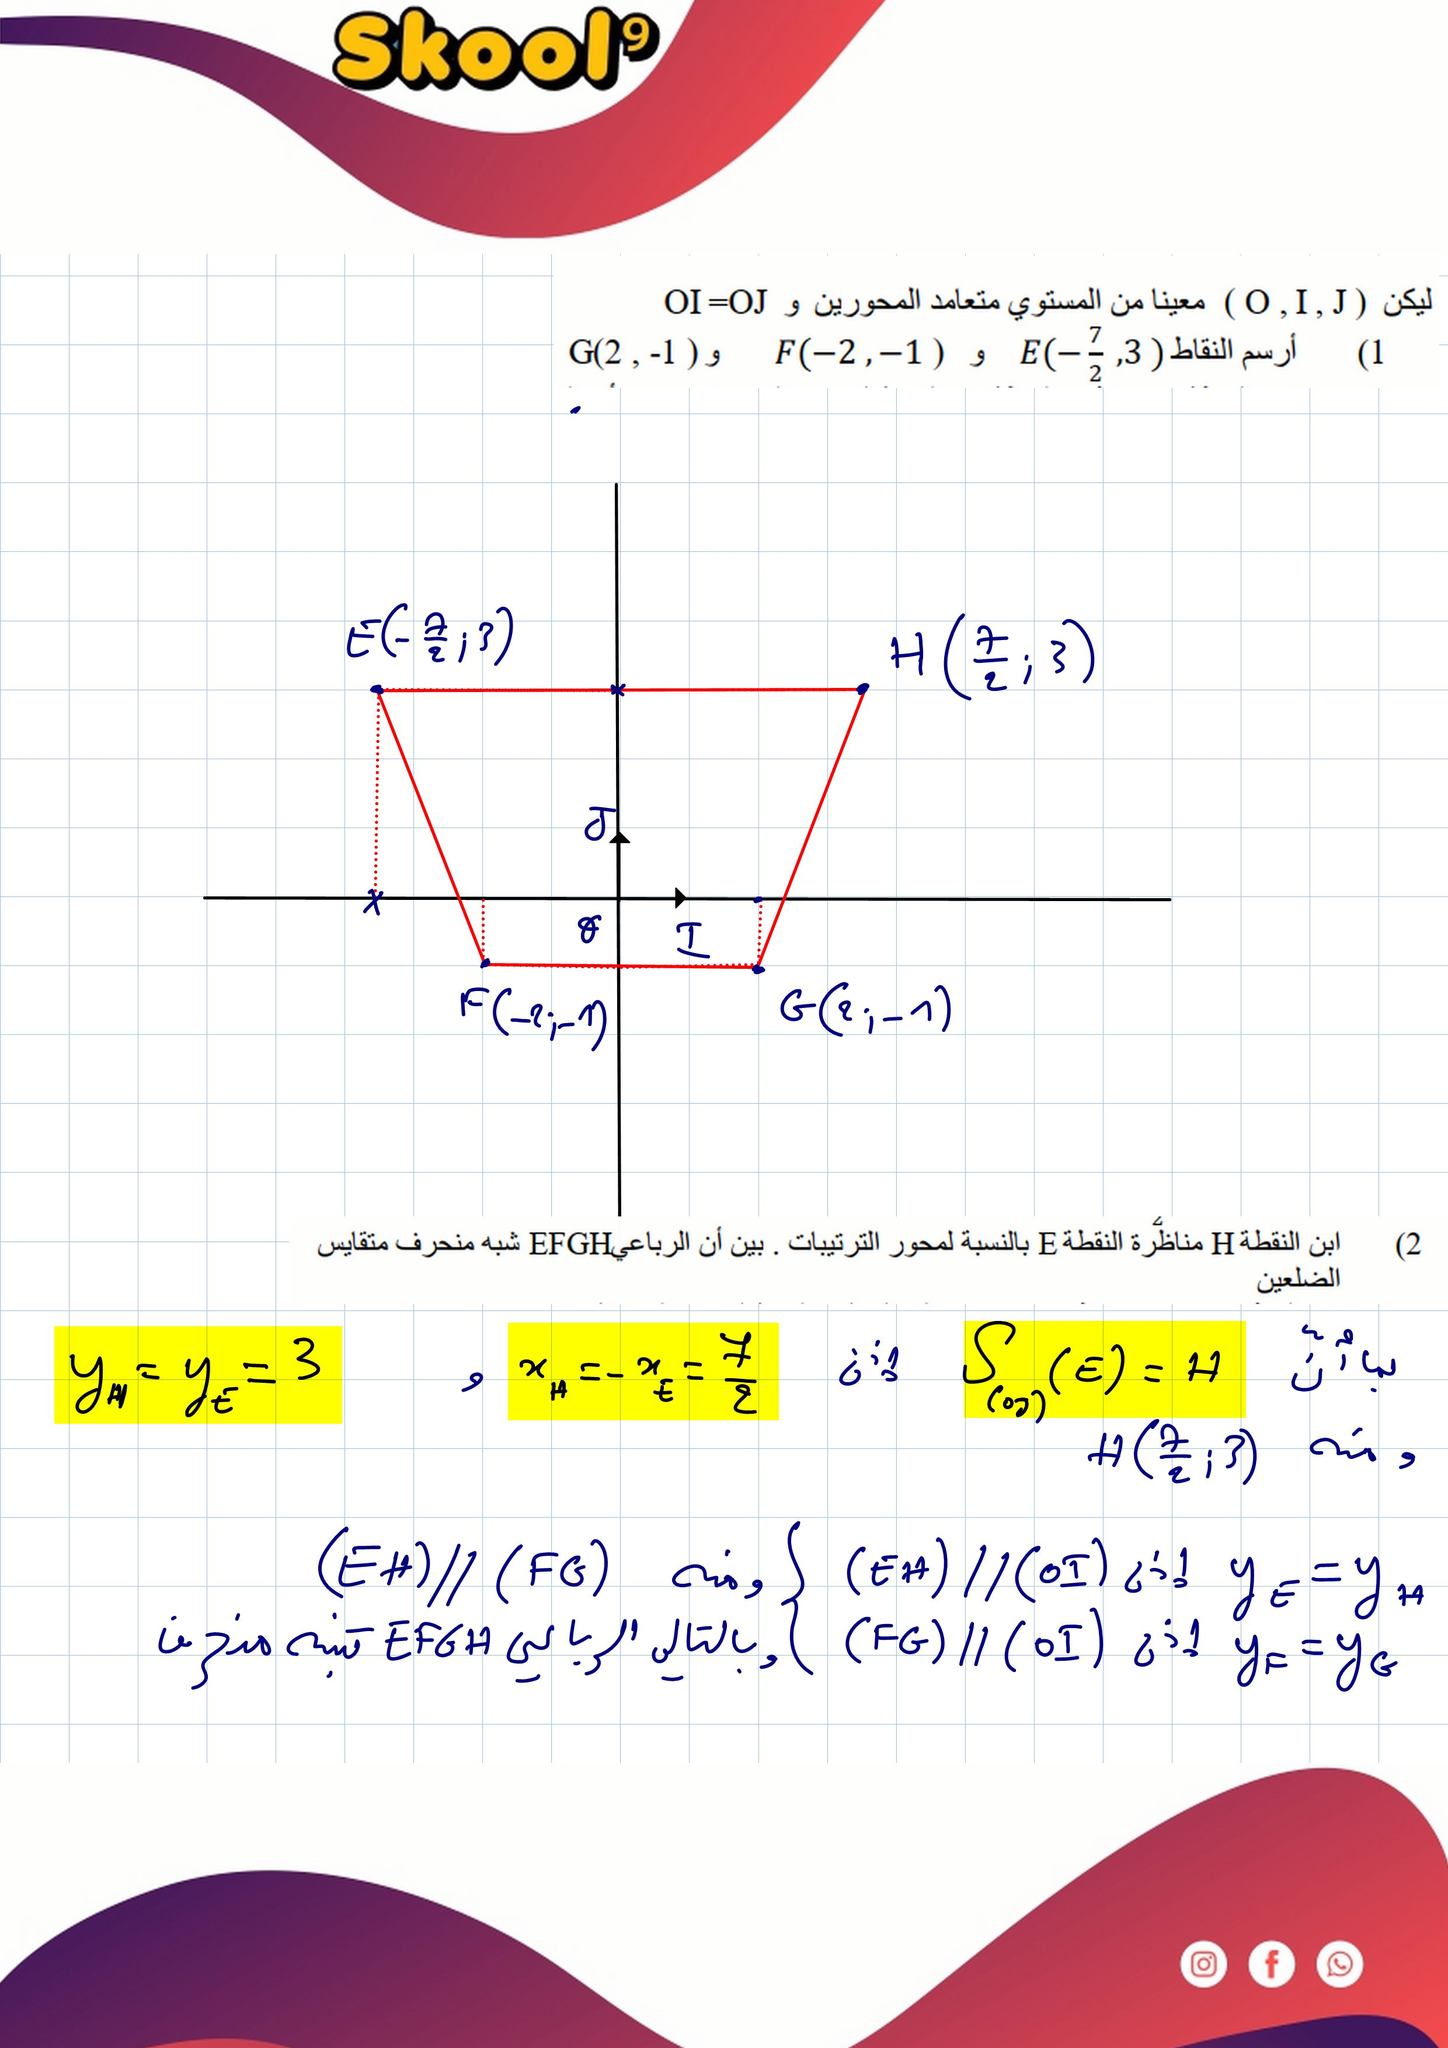 Skool9
ليكن ( O , I , J ) معينا من المستوي متعامد المحورين و OI =OJ
1) أرسم النقاط E(−7/2 ,3 ) و F(−2 ,−1 ) و G(2 , -1 )
E(-7/2 ; 3)
H(7/2 ; 3)
J
O
I
F(-2 ; -1)
G(2 ; -1)
2) ابن النقطة H مناظرة النقطة E بالنسبة لمحور الترتيبات . بين أن الرباعي EFGH شبه منحرف متقايس
الضلعين
بما أنّ S(OJ)(E) = H إذن x_H = -x_E = 7/2 و y_H = y_E = 3
ومنه H(7/2 ; 3)
y_E = y_H إذن (EH) // (OI) } ومنه (EH) // (FG)
y_F = y_G إذن (FG) // (OI) } وبالتالي الرباعي EFGH شبه منحرف